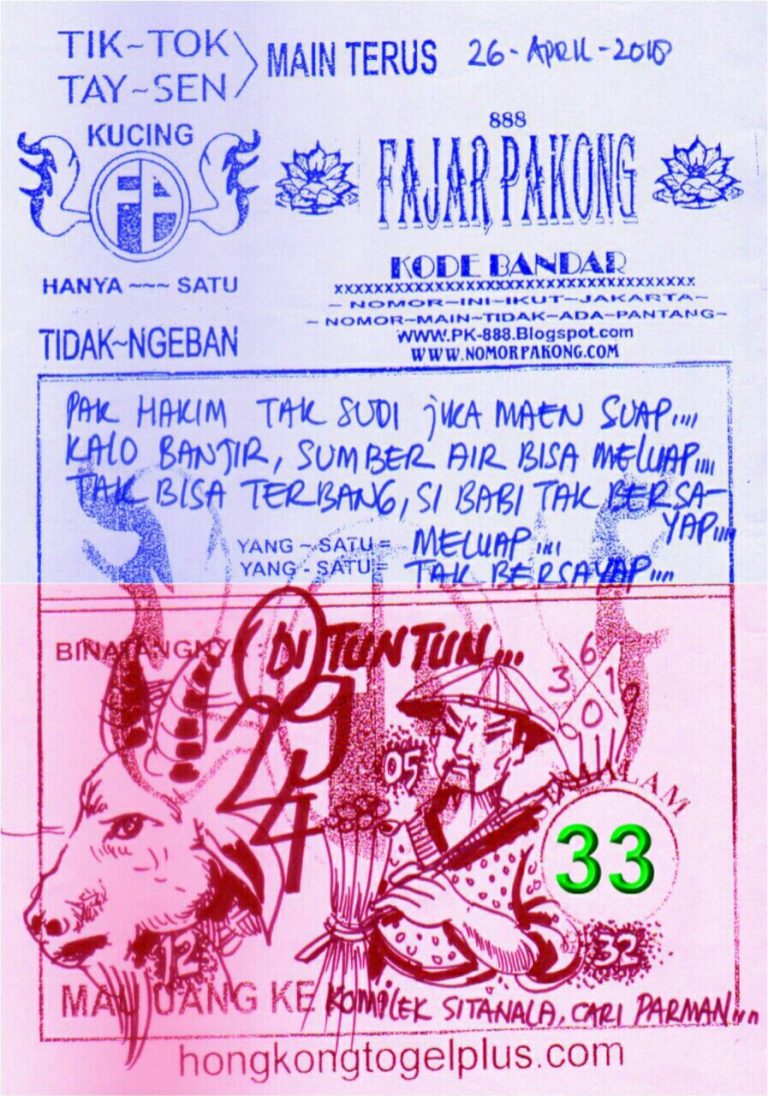 TIK~TOK
TAY~SEN
MAIN TERUS 26-APRIL-2018
KUCING
888
FAJAR PAKONG
HANYA ~~~ SATU
KODE BANDAR
xxxxxxxxxxxxxxxxxxxxxxxxxxxxxxxxxxxx
~ NOMOR~INI~IKUT~JAKARTA~
~ NOMOR~MAIN~TIDAK~ADA~PANTANG~
WWW.PK-888.Blogspot.com
TIDAK~NGEBAN
WWW.NOMORPAKONG.COM
PAK HAKIM TAK SUDI JIKA MAEN SUAP,,,,
KALO BANJIR, SUMBER AIR BISA MELUAP,,,,
TAK BISA TERBANG, SI BABI TAK BERSA-
YAP,,,,
YANG ~ SATU = MELUAP,,,,
YANG - SATU = TAK BERSAYAP,,,,
BINATANGNYA : DI TUNTUN,,,
6
3 1 9
0
29
4
05
33
12
32
MAU UANG KE KOMPLEK SITANALA, CARI PARMAN,,,,
hongkongtogelplus.com